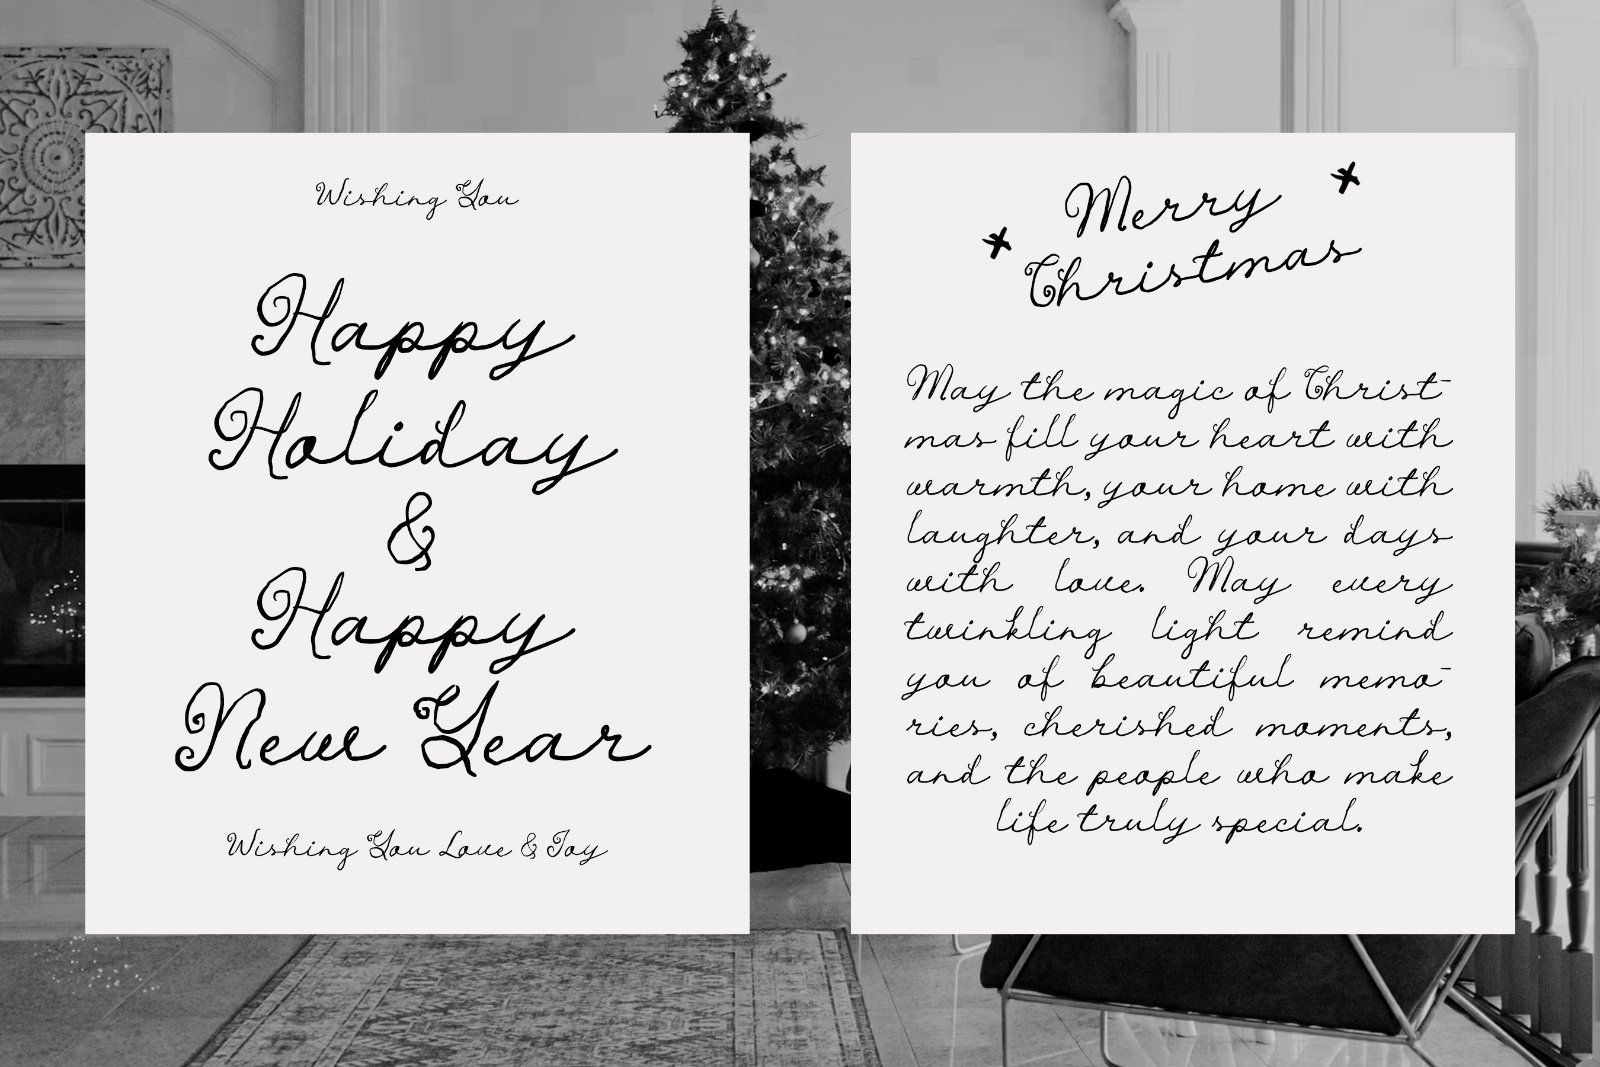 Wishing You
Happy
Holiday
&
Happy
New Year
Wishing You Love & Joy
Merry
Christmas
May the magic of Christ-
mas fill your heart with
warmth, your home with
laughter, and your days
with love. May every
twinkling light remind
you of beautiful memo-
ries, cherished moments,
and the people who make
life truly special.